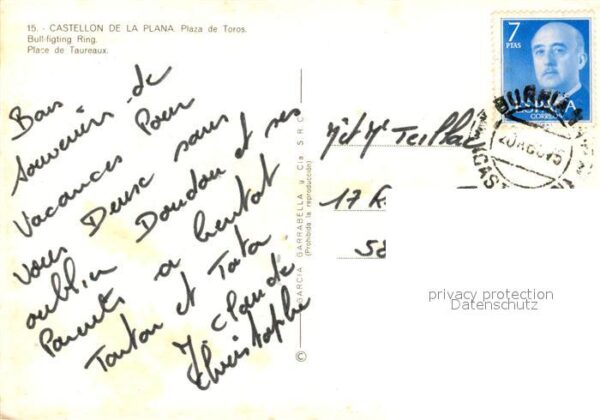 15. - CASTELLON DE LA PLANA. Plaza de Toros.
Bull-figting Ring.
Place de Taureaux.
Bons
Souvenirs de
Vacances Pour
vous Deux sans
oublier Doudou et ses
Parents a bientot
Tonton et Tata
J Claude
Christophe
GARCIA GARRABELLA y Cía. S.R.C.
(Prohibida la reproducción)
©
7
PTAS
ESPAÑA
CORREOS
BURRIANA
20 AGO 75
Mr et Me
17 R
58
privacy protection
Datenschutz